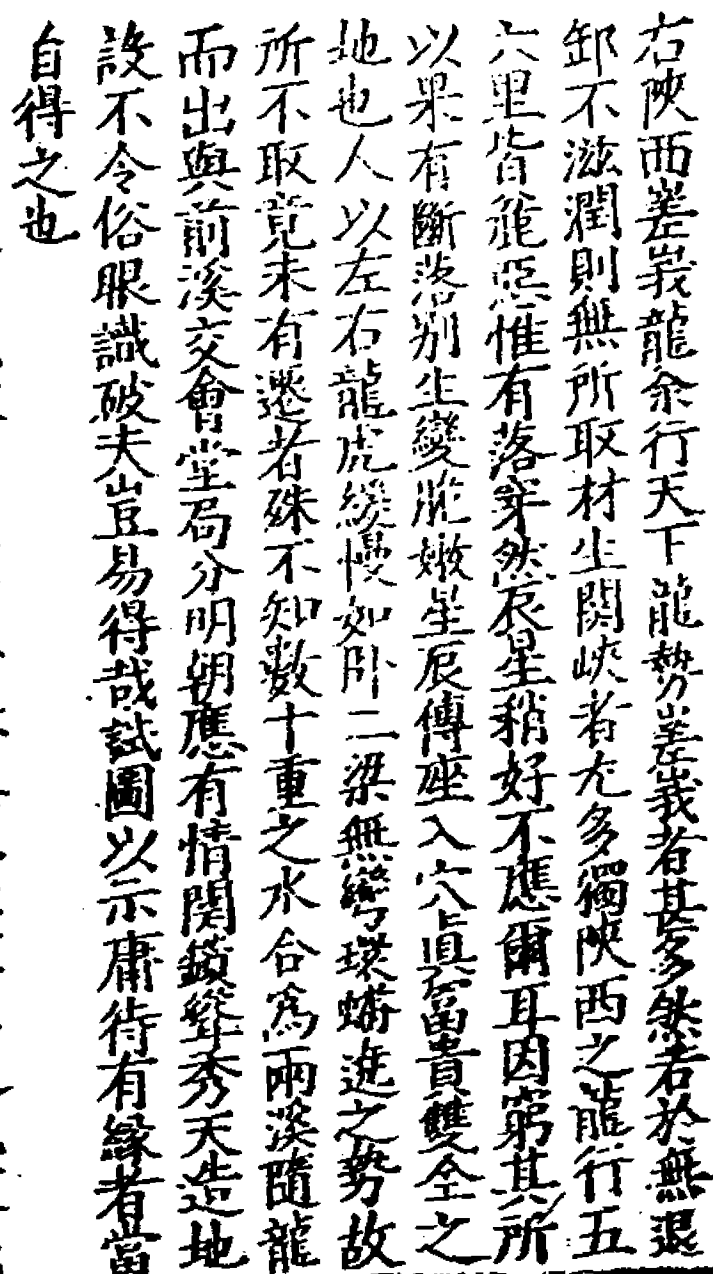 右陝西嵳峩龍余行天下龍勢嵳峩者甚多然若於無退
卸不滋潤則無所取材生関峽者尤多獨陝西之龍行五
六里皆麄惡惟有落穿然辰星稍好不應爾耳因窮其所
以果有斷落别生變脆嫩星辰傳座入穴真冨貴雙全之
地也人以左右龍虎緩慢如卧二梁無彎環蟠遶之勢故
所不取竟未有遷者殊不知数十重之水合為兩溪隨龍
而出與前溪交會堂局分明朝應有情関鎖聳秀天造地
設不令俗眼識破夫豈易得哉試圖以示庸待有緣者當
自得之也